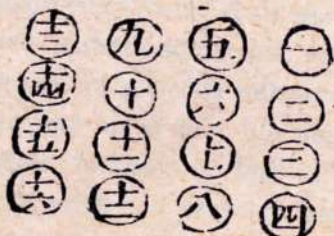 一
二
三
四
五
六
七
八
九
十
十一
十二
十三
十四
十五
十六